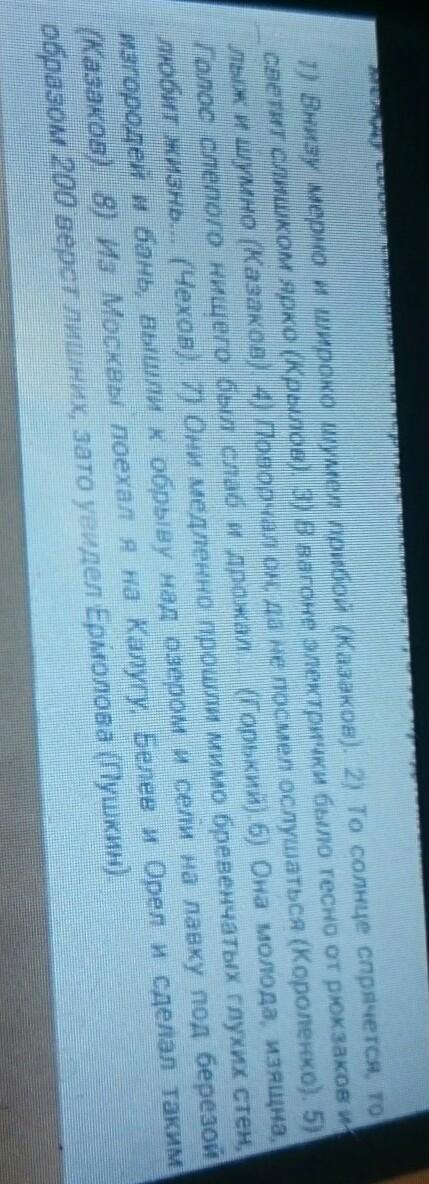 1) Внизу мерно и широко шумел прибой (Казаков). 2) То солнце спрячется, то
светит слишком ярко (Крылов). 3) В вагоне электрички было тесно от рюкзаков и
лыж и шумно (Казаков). 4) Поворчал он, да не посмел ослушаться (Короленко). 5)
Голос слепого нищего был слаб и дрожал... (Горький). 6) Она молода, изящна,
любит жизнь... (Чехов). 7) Они медленно прошли мимо бревенчатых глухих стен,
изгородей и бань, вышли к обрыву над озером и сели на лавку под березой
(Казаков). 8) Из Москвы поехал я на Калугу, Белев и Орел и сделал таким
образом 200 верст лишних, зато увидел Ермолова (Пушкин).